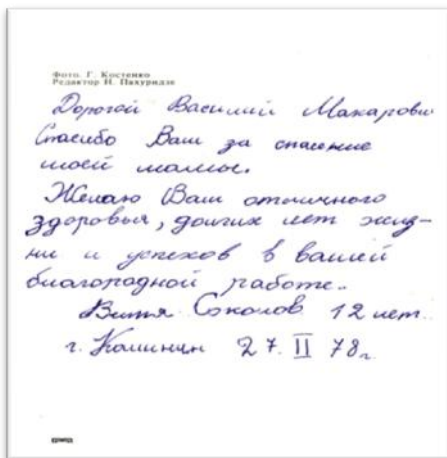 Фото Г. Костенко
Редактор Н. Пахуридзе
Дорогой Василий Макарович
Спасибо Вам за спасение
моей мамы.
Желаю Вам отличного
здоровья, долгих лет жиз-
ни и успехов в вашей
благородной работе.
Витя Соколов 12 лет.
г. Калинин 27. II 78 г.